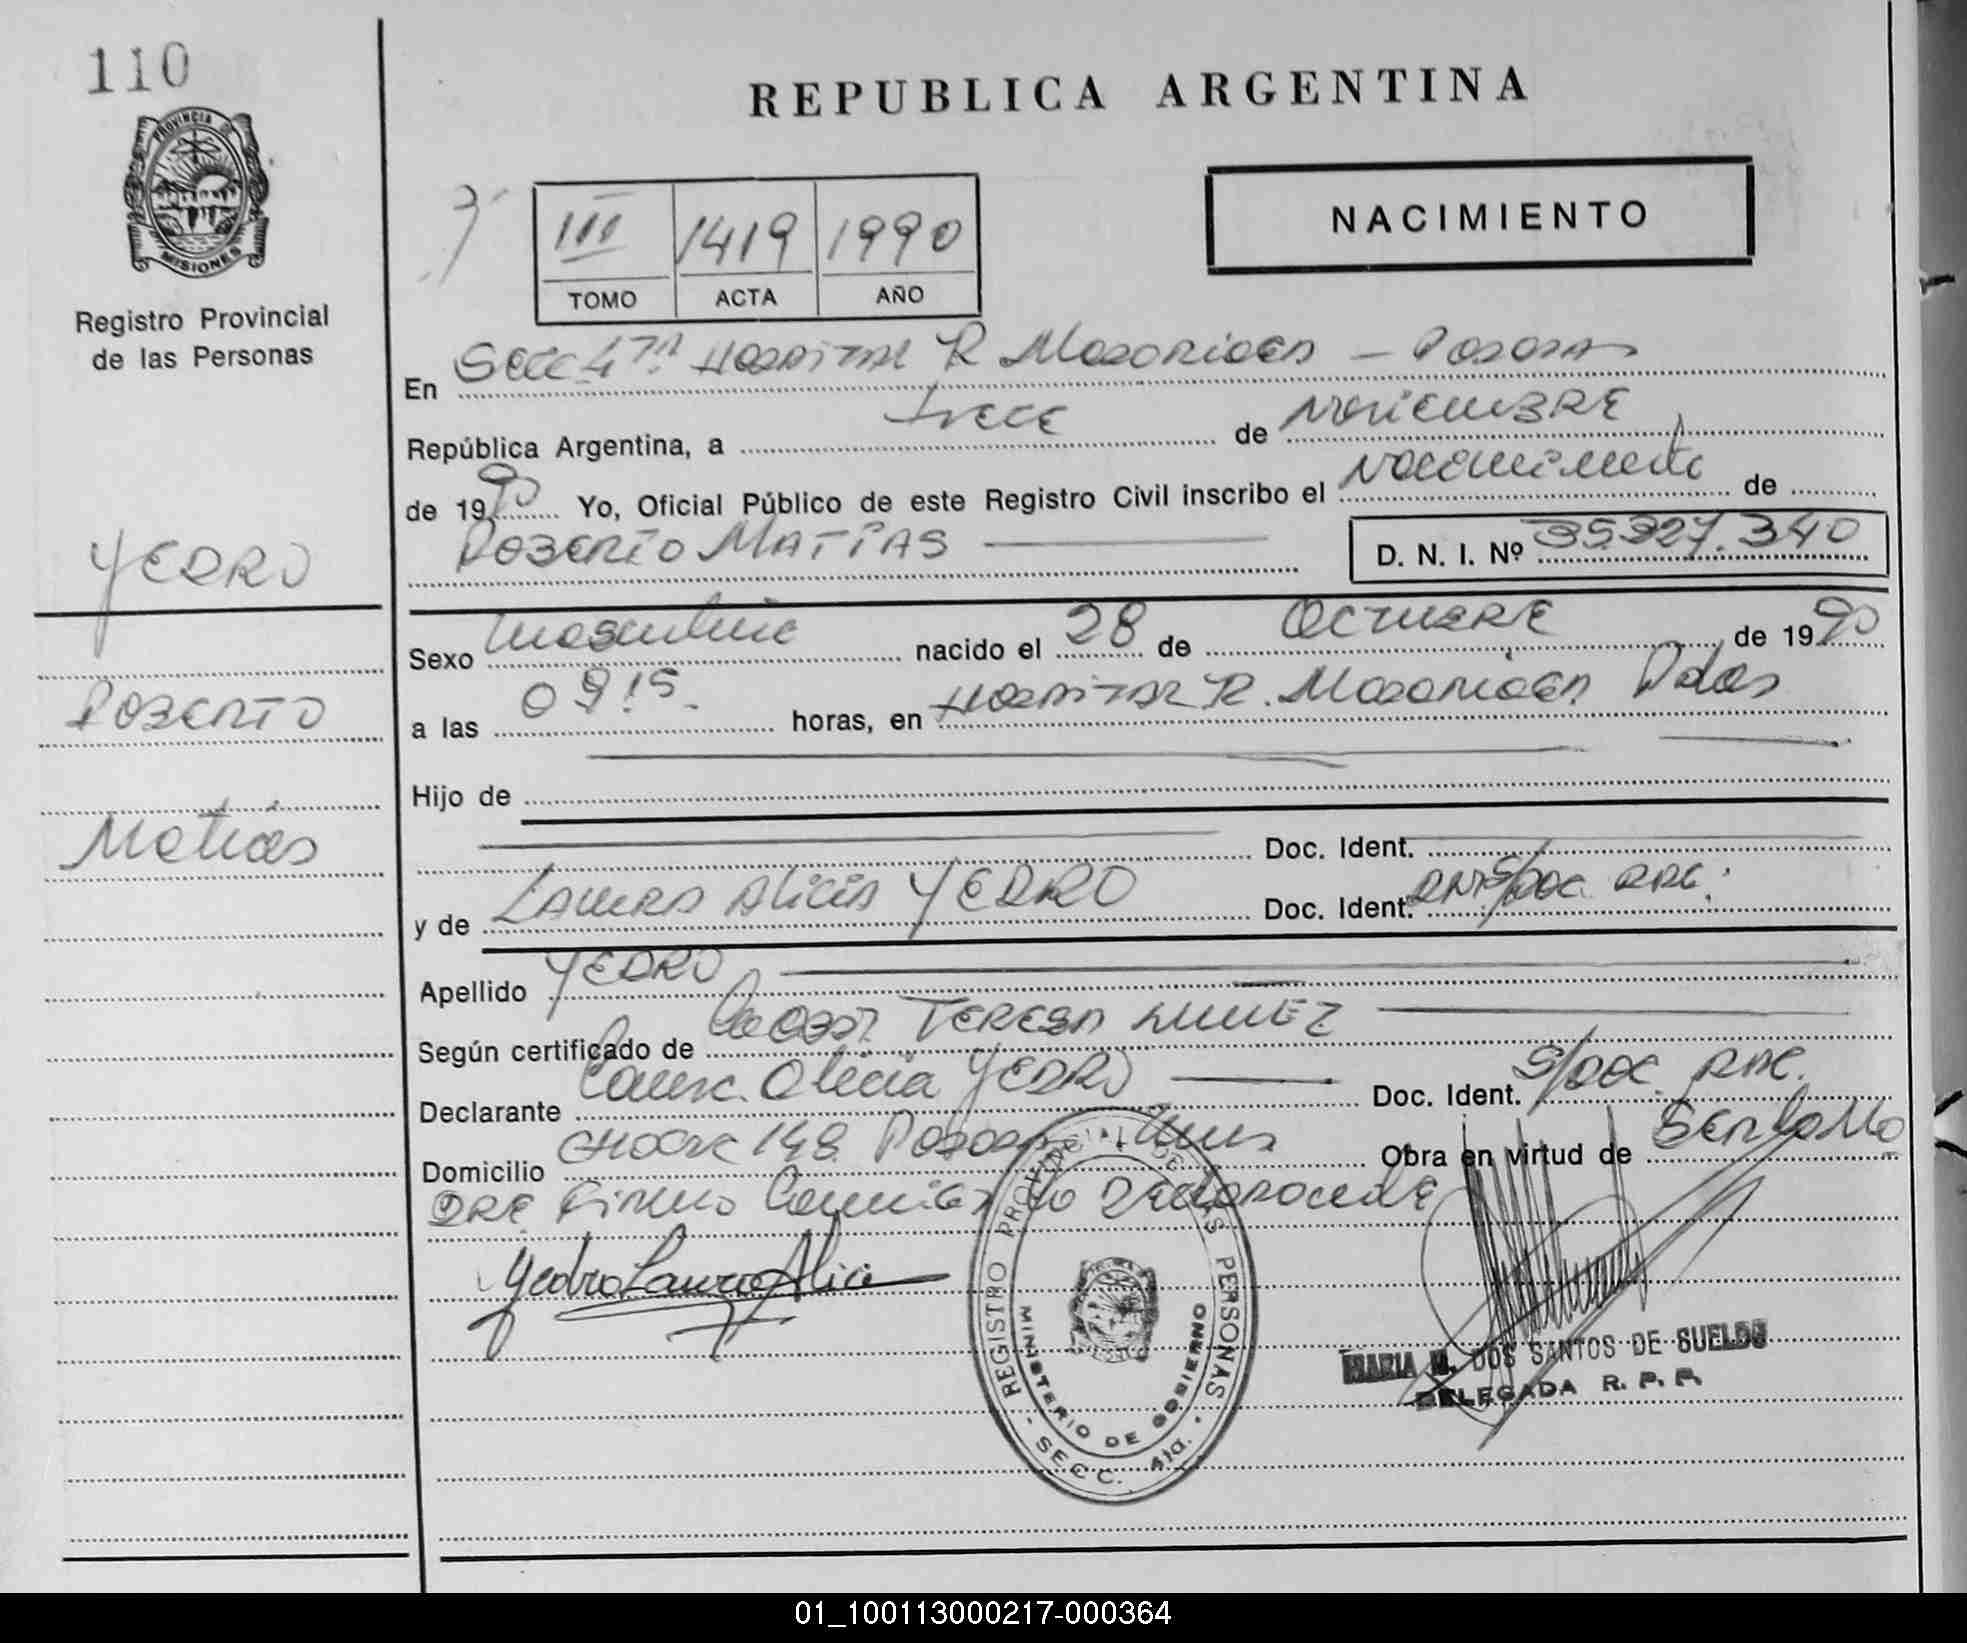 110
REPUBLICA ARGENTINA
PROVINCIA DE
MISIONES
Registro Provincial
de las Personas
III 1419 1990
TOMO ACTA AÑO
NACIMIENTO
En Secc 4ta Hospital R Madariaga - Posadas
República Argentina, a trece de Noviembre
de 1990 Yo, Oficial Público de este Registro Civil inscribo el Nacimiento de
ROBERTO MATIAS
D. N. I. Nº 35.327.340
YEDRO
ROBERTO
Matias
Sexo masculino nacido el 28 de Octubre de 1990
a las 09:15. horas, en Hospital R. Madariaga Pdas
Hijo de
Doc. Ident.
y de Laura Alicia YEDRO Doc. Ident. s/doc
Apellido YEDRO
Según certificado de TERESA
Declarante Laura Alicia YEDRO Doc. Ident. s/doc
Domicilio 148 Posadas Mnes Obra en virtud de
Firma la declarante
Yedro Laura Alicia
REGISTRO PROVINCIAL DE LAS PERSONAS
MINISTERIO DE GOBIERNO
- SECC. 4ta. -
MARIA M. DOS SANTOS DE SUELDO
DELEGADA R. P. P.
01_100113000217-000364